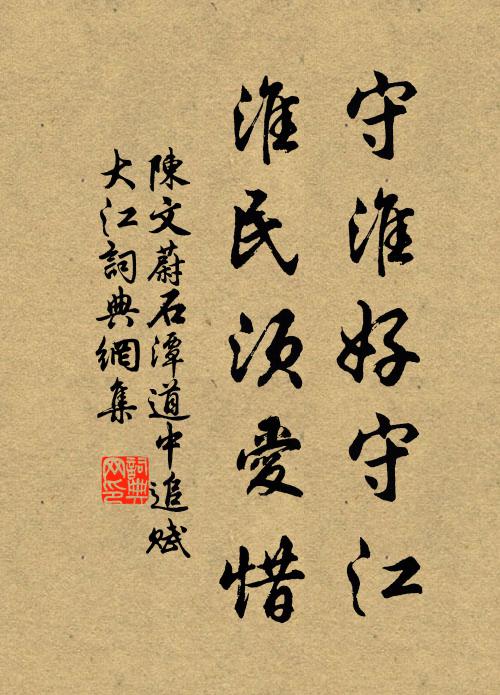 守淮好守江
淮民須愛惜
陳文蔚石潭道中追賦
大江詞典網集
詞典
网印